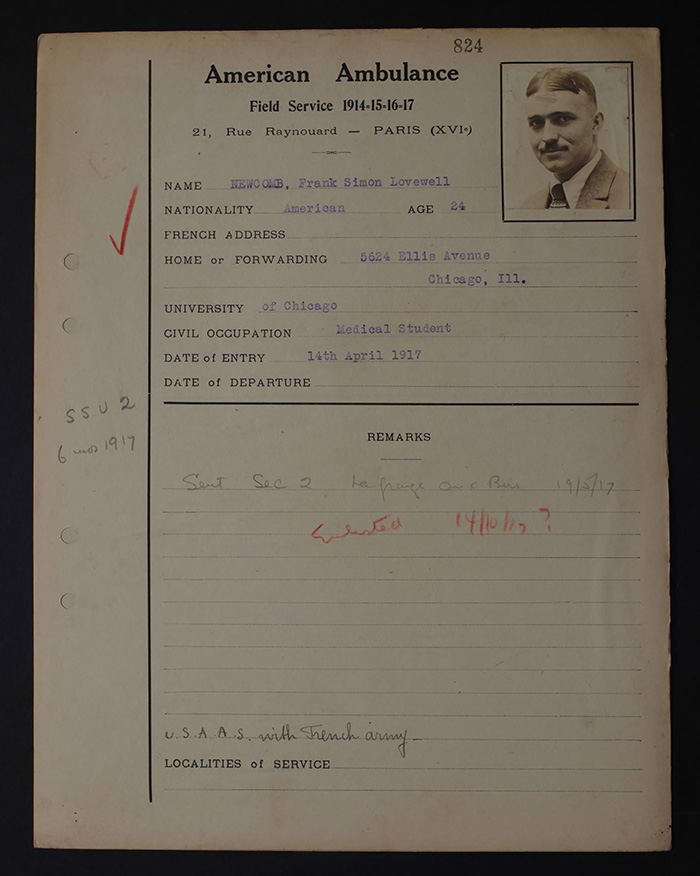 824
American Ambulance
Field Service 1914-15-16-17
21, Rue Raynouard — PARIS (XVIe)
NAME NEWCOMB, Frank Simon Lovewell
NATIONALITY American AGE 24
FRENCH ADDRESS
HOME or FORWARDING 5624 Ellis Avenue
Chicago, Ill.
UNIVERSITY of Chicago
CIVIL OCCUPATION Medical Student
DATE of ENTRY 14th April 1917
DATE of DEPARTURE
SSU 2
6 mos 1917
REMARKS
Sent Sec 2 19/5/17
Enlisted 14/10/17 ?
U.S.A.A.S. with French army —
LOCALITIES of SERVICE